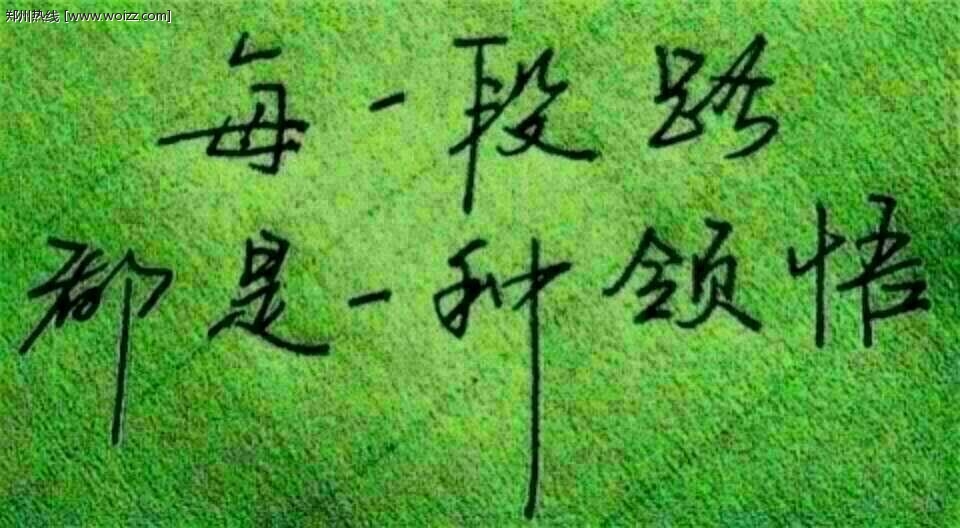 郑州热线 [www.woizz.com]
每一段路
都是一种领悟